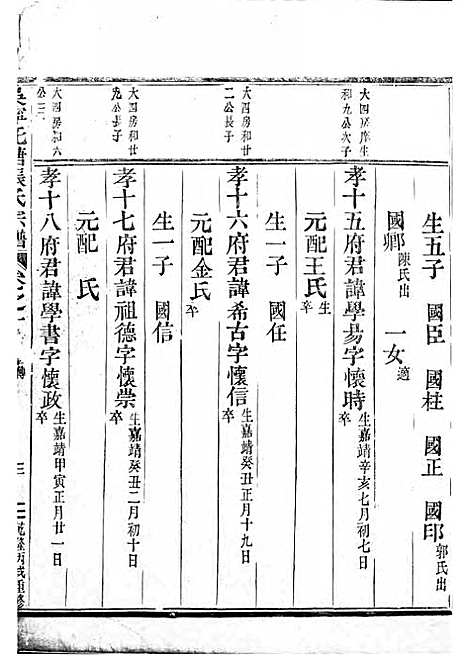 生五子 國臣 國柱 國正 國印郭氏出
國卿陳氏出 一女適
大四房庠生和九公次子
孝十五府君諱學易字懷時生嘉靖辛亥七月初七日卒
元配王氏生卒
生一子 國任
大四房和廿二公長子
孝十六府君諱希古字懷信生嘉靖癸丑正月十九日卒
元配金氏卒
生一子 國信
大四房和廿九公長子
孝十七府君諱祖德字懷崇生嘉靖癸丑二月初十日卒
元配 氏
大四房和六公三
孝十八府君諱學書字懷政生嘉靖甲寅正月廿一日卒
張氏宗譜
三
乾隆丙戌重修